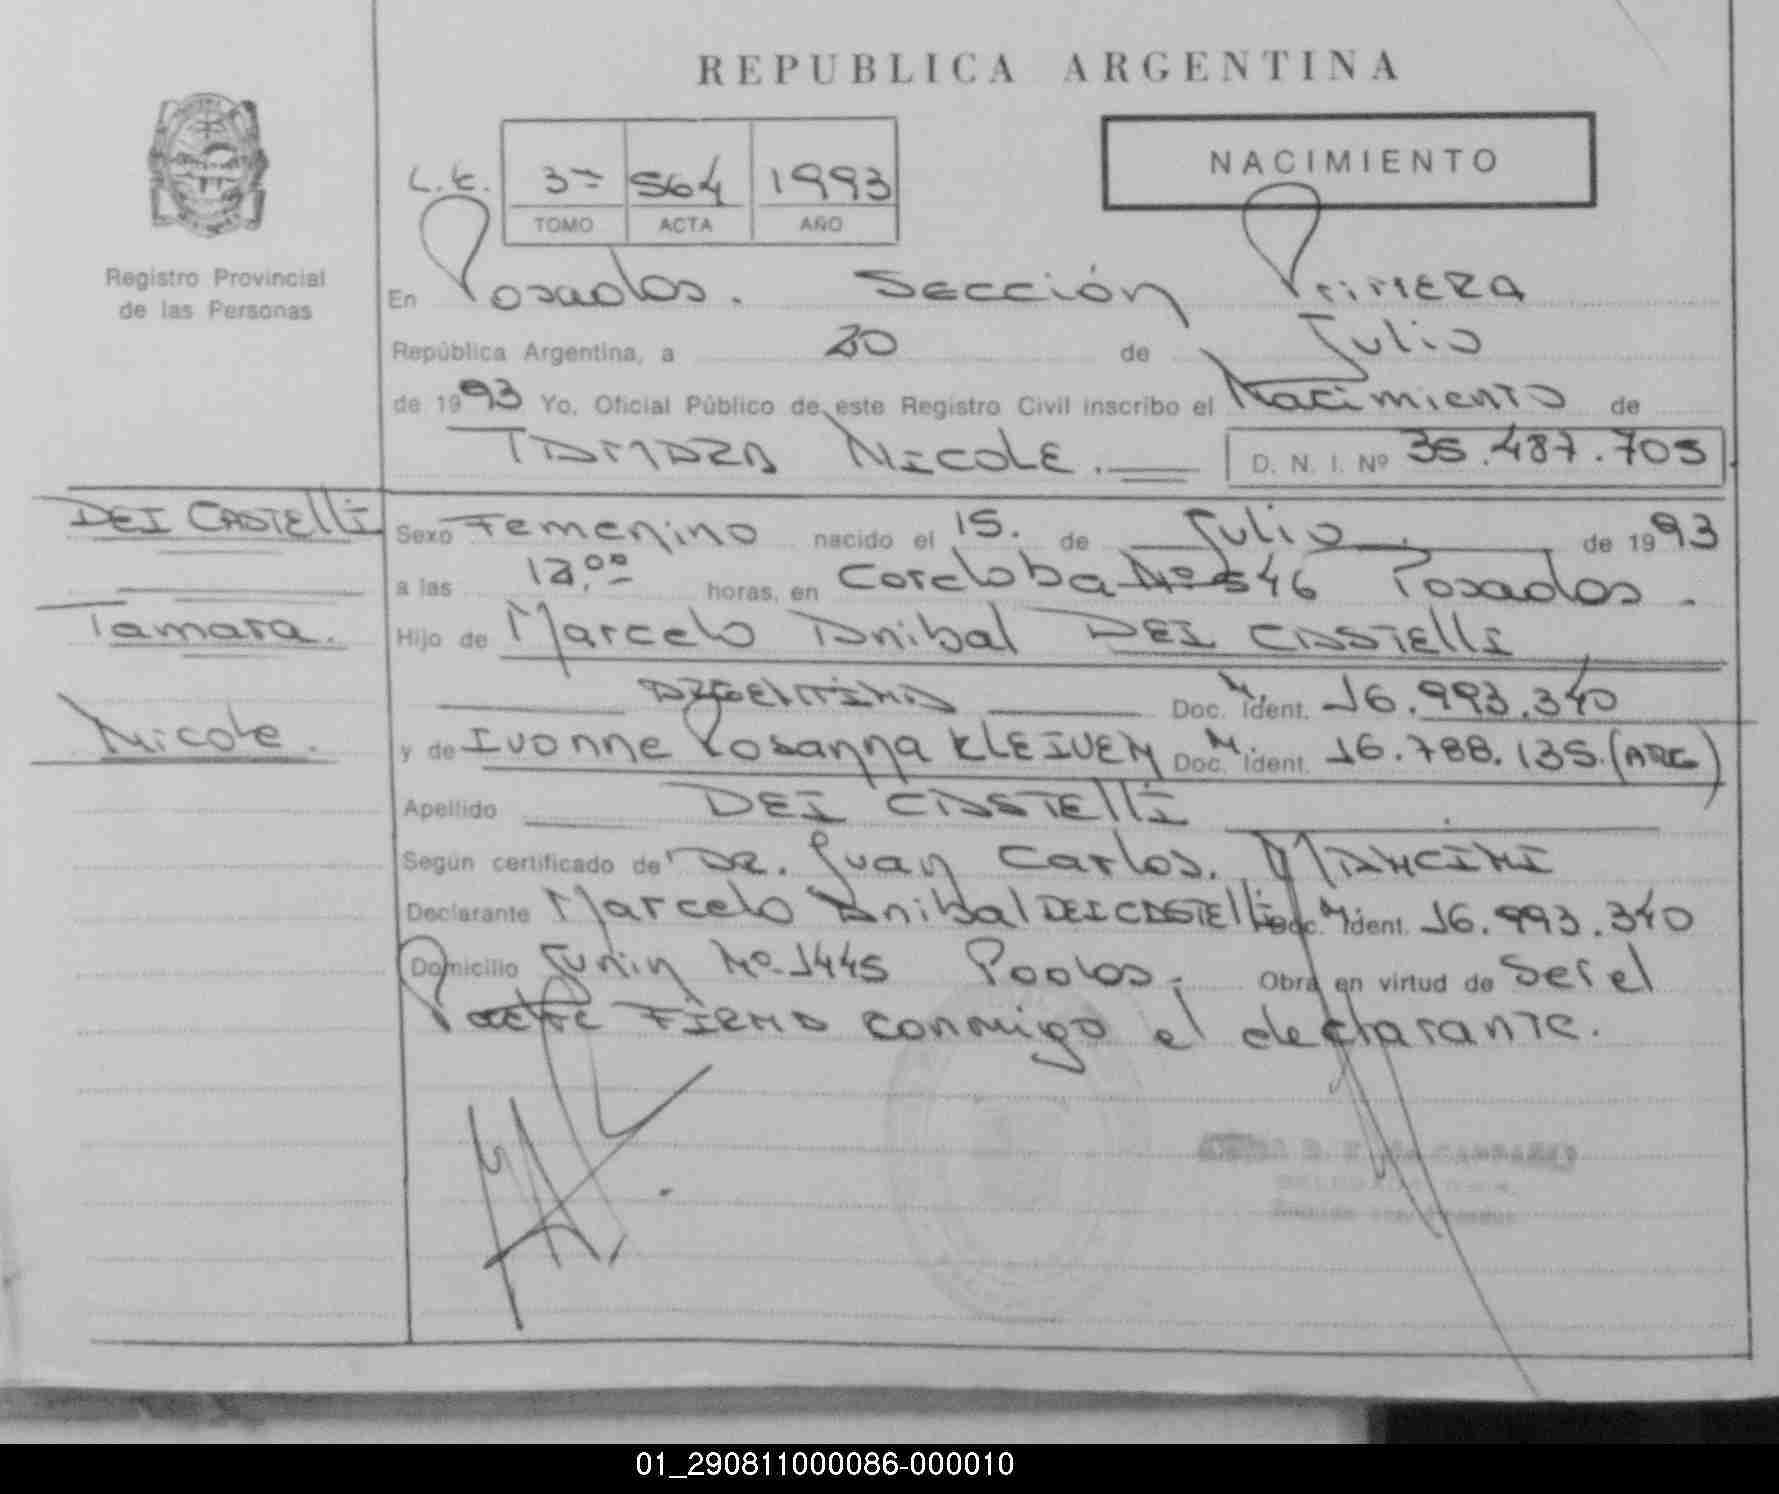 REPUBLICA ARGENTINA
NACIMIENTO
L.C. 3= 564 1993
TOMO ACTA AÑO
Registro Provincial
de las Personas
En Posadas. Sección Primera
República Argentina, a 20 de Julio
de 1993 Yo, Oficial Público de este Registro Civil inscribo el Nacimiento de
TAMARA NICOLE. D. N. I. Nº 35.487.705
DEI CASTELLI
Tamara.
Nicole.
Sexo Femenino nacido el 15. de Julio. de 1993
a las horas, en Cordoba Nº 546 Posadas.
Hijo de Marcelo Anibal DEI CASTELLI
ARGENTINO Doc. M. Ident. 16.993.340
y de Ivonne Rosanna KLEIVEN Doc. M. Ident. 16.788.135.(ARG)
Apellido DEI CASTELLI
Según certificado de DR. Juan Carlos. MANCINI
Declarante Marcelo Anibal DEI CASTELLI Doc. M. Ident. 16.993.340
Domicilio Junin Nº 1445 Pdas. Obra en virtud de ser el
Padre FIRMA conmigo el declarante.
01_290811000086-000010